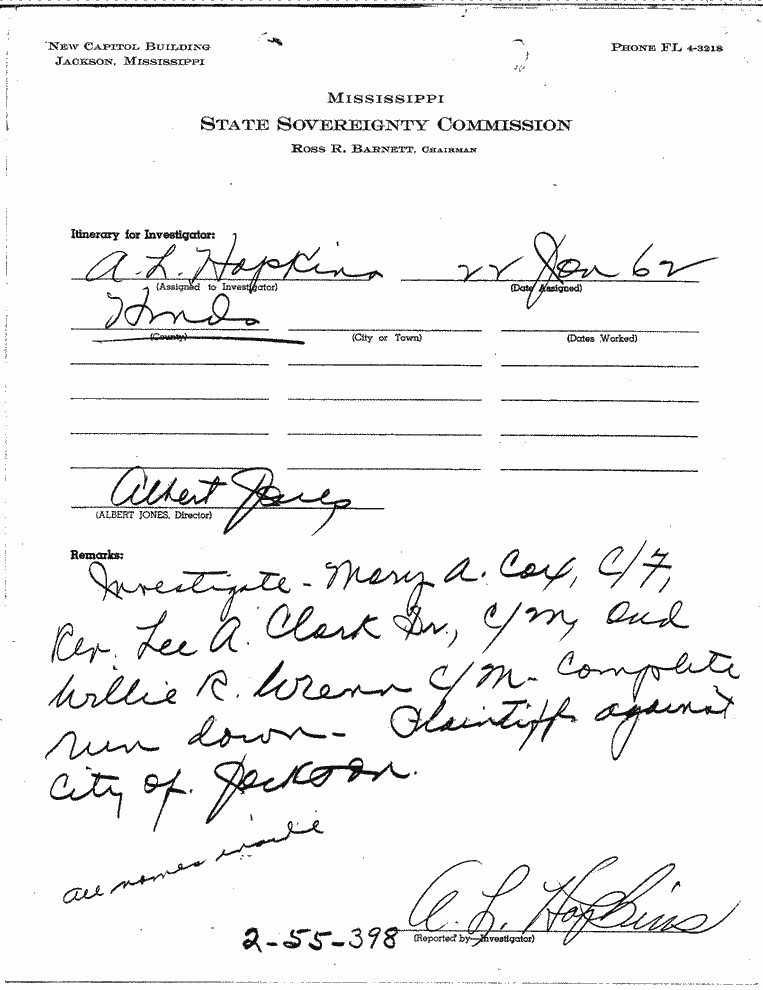 NEW CAPITOL BUILDING
JACKSON, MISSISSIPPI
PHONE FL 4-3218
MISSISSIPPI
STATE SOVEREIGNTY COMMISSION
ROSS R. BARNETT, CHAIRMAN
Itinerary for Investigator:
A. L. Hopkins 22 Jan 62
(Assigned to Investigator) (Date Assigned)
Hinds
(County) (City or Town) (Dates Worked)
Albert Jones
(ALBERT JONES, Director)
Remarks:
Investigate - Mary A. Cox, C/F,
Rev. Lee A. Clark Sr., C/M, and
Willie R. Wrenn C/M - Complete
run down - Plaintiff against
City of Jackson.
all names
A. L. Hopkins
2-55-398 (Reported by Investigator)